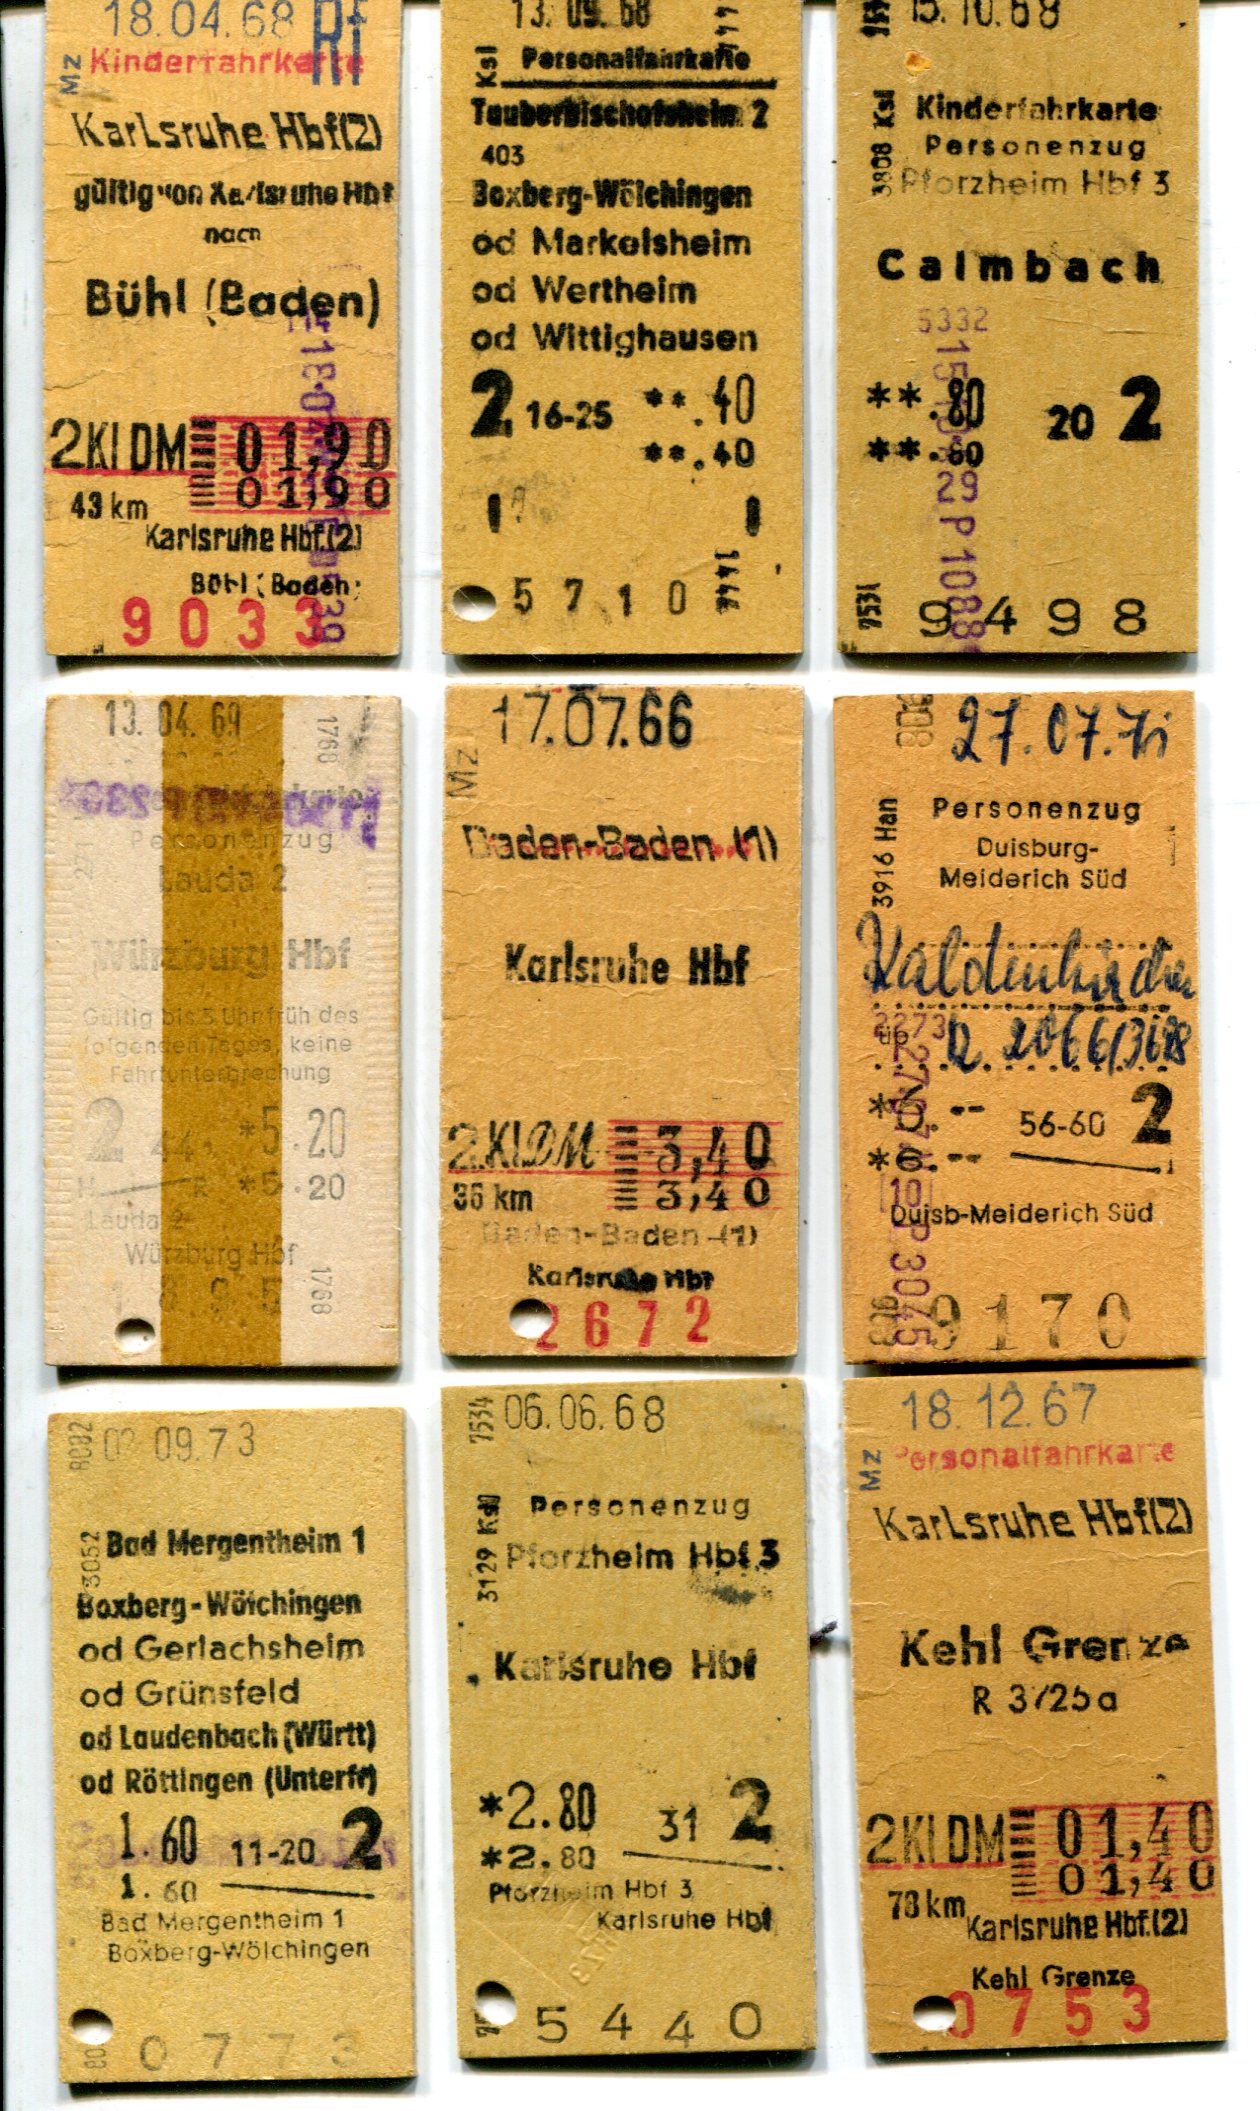 18.04.68 Rf
Mz
Kinderfahrkarte
Karlsruhe Hbf(2)
gültig von Karlsruhe Hbf
nach
Bühl (Baden)
2KlDM 01,90
01,90
43 km
Karlsruhe Hbf.(2)
Bühl (Baden)
9033
13.09.68
Ksl
Personalfahrkarte
Tauberbischofsheim 2
403
Boxberg-Wölchingen
od Markelsheim
od Wertheim
od Wittighausen
2 16-25 **.40
**.40
5710
15.10.68
3808 Ksl
Kinderfahrkarte
Personenzug
Pforzheim Hbf 3
Calmbach
5332
**.80 20 2
**.80
29 P 1088
7534
9498
13.04.69
1768
Personenzug
Lauda 2
Würzburg Hbf
Gültig bis 3 Uhr früh des
folgenden Tages, keine
Fahrtunterbrechung
2 44 *5.20
H R *5.20
Lauda 2
Würzburg Hbf
1768
17.07.66
Mz
Baden-Baden (1)
Karlsruhe Hbf
2.Kl.DM 3,40
3,40
36 km
Baden-Baden (1)
Karlsruhe Hbf
2672
27.07.71
3916 Han
Personenzug
Duisburg-
Meiderich Süd
Kaldenkirchen
2273
üb
*6.-- 56-60 2
*6.--
10 P 3045
Duisb-Meiderich Süd
9170
8082
02.09.73
3052
Bad Mergentheim 1
Boxberg-Wölchingen
od Gerlachsheim
od Grünsfeld
od Laudenbach (Württ)
od Röttingen (Unterfr)
1.60 11-20 2
1.60
Bad Mergentheim 1
Boxberg-Wölchingen
0773
7534
06.06.68
3129 Ksl
Personenzug
Pforzheim Hbf 3
Karlsruhe Hbf
*2.80 31 2
*2.80
Pforzheim Hbf 3
Karlsruhe Hbf
5440
18.12.67
Mz
Personalfahrkarte
Karlsruhe Hbf(2)
Kehl Grenze
R 3725a
2KlDM 01,40
01,40
78 km
Karlsruhe Hbf.(2)
Kehl Grenze
0753